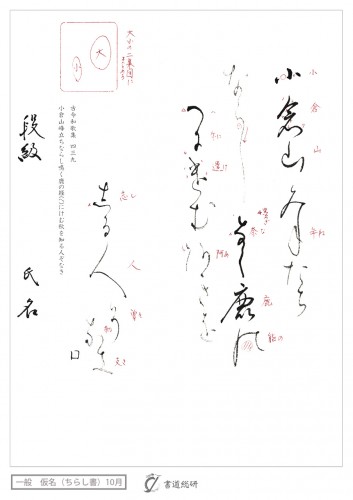 小倉山みねたち
ならし
なく鹿能
へに遣む阿きを
志る人
なき
大
小
古今和歌集 四三九
小倉山峰立ちならし鳴く鹿の経にけむ秋を知る人ぞなき
段級 氏名
一般 仮名（ちらし書）10月
書道総研